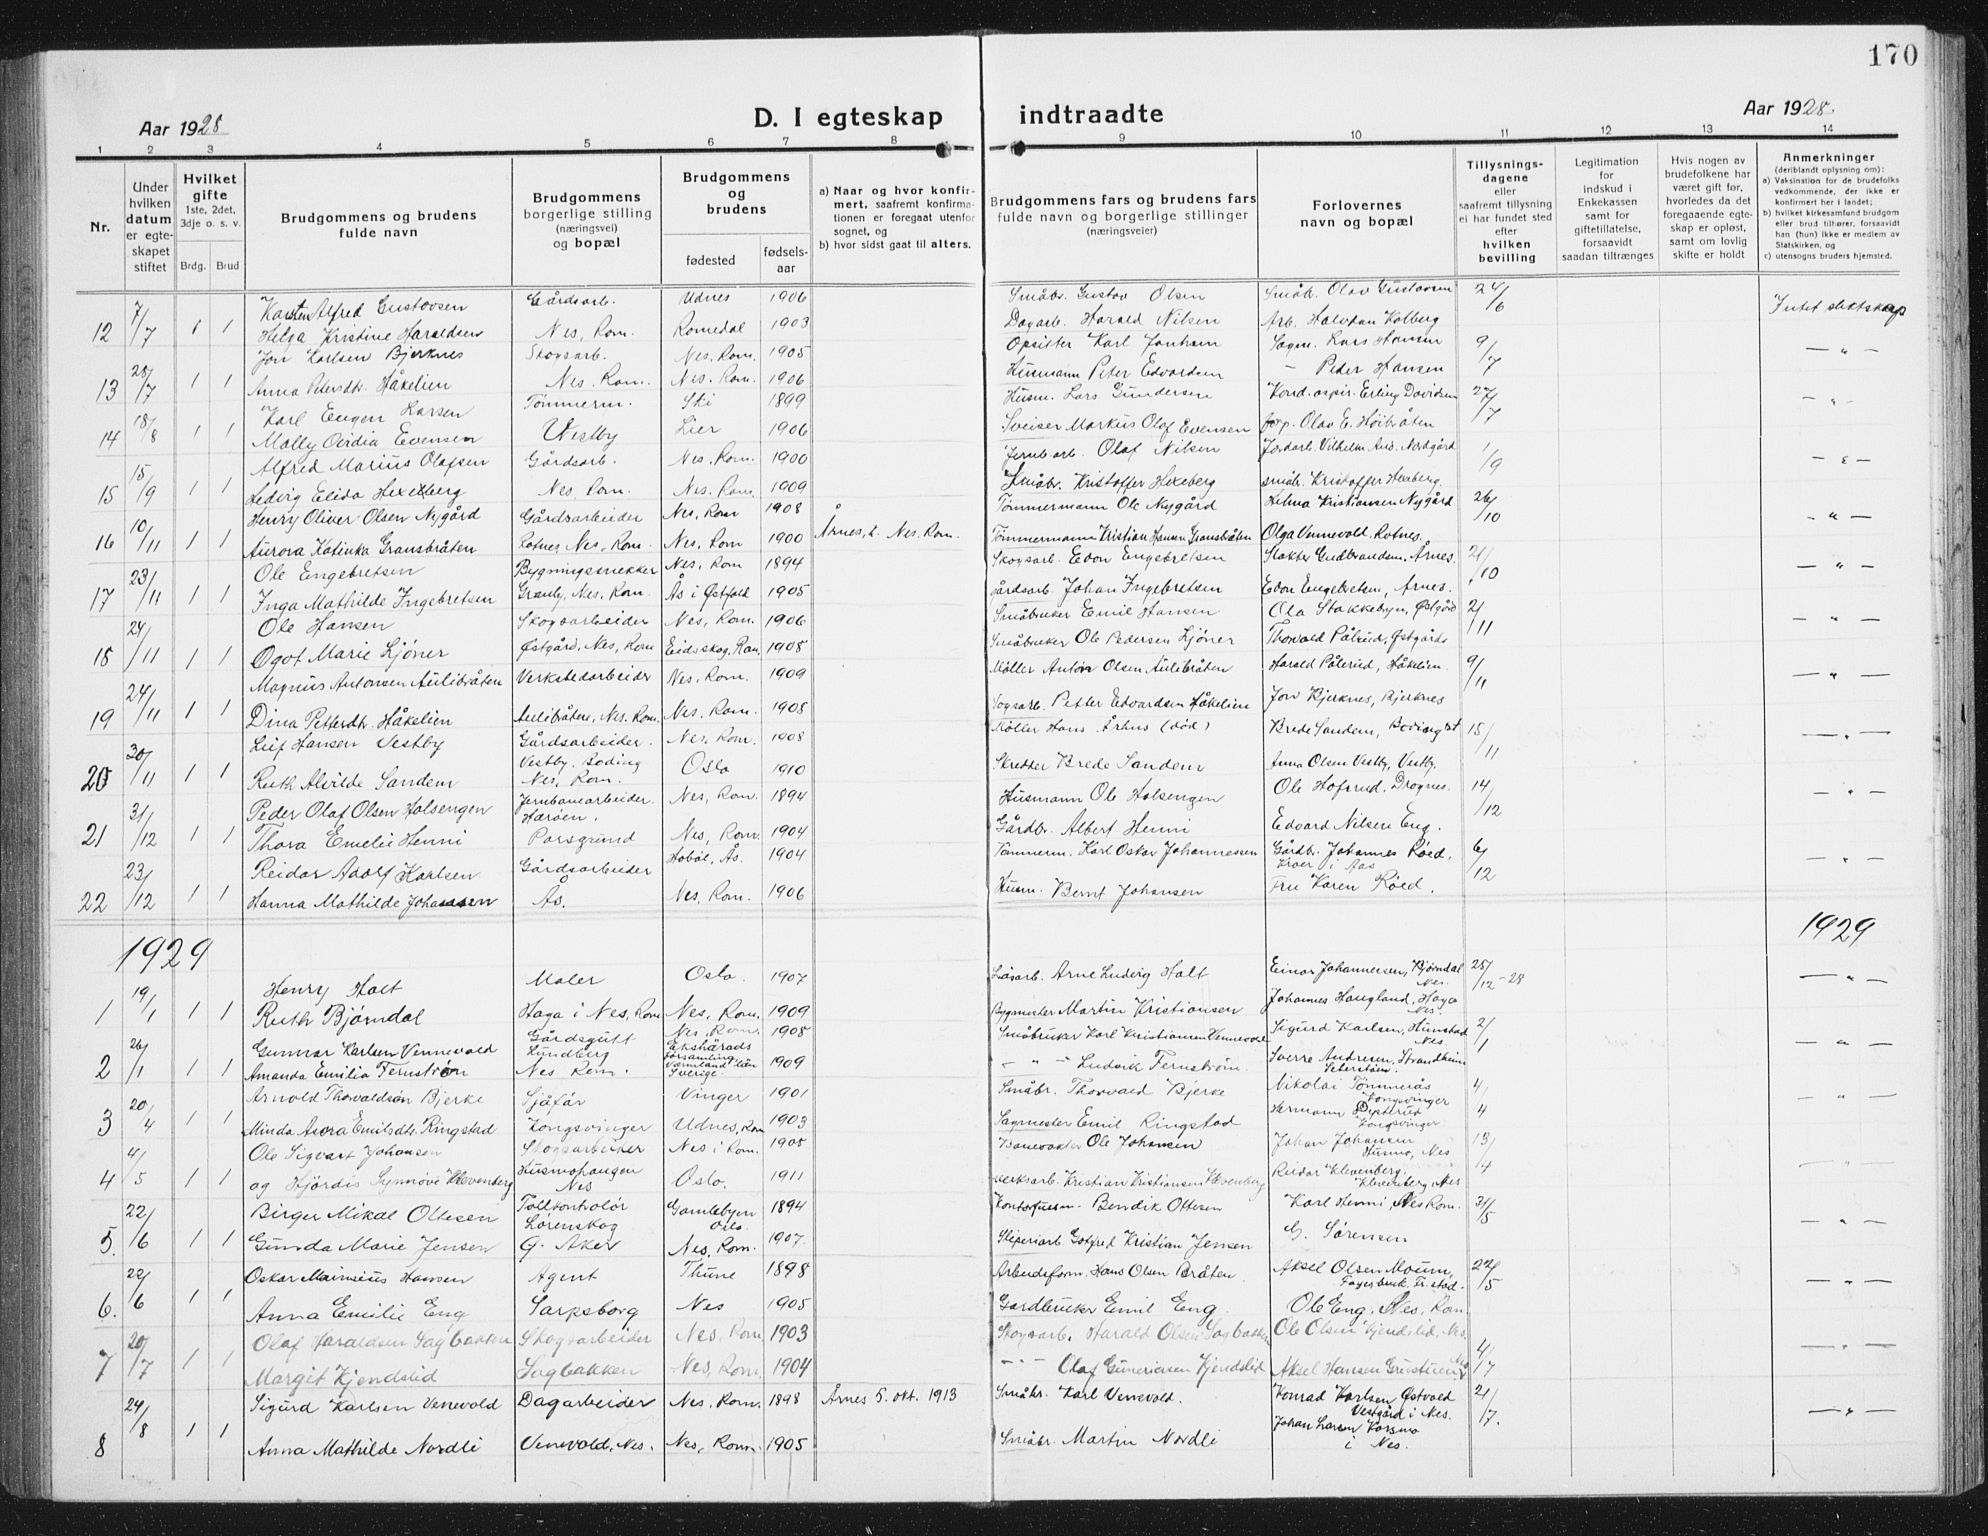 170
Aar 1928
D. I egteskap indtraadte
Aar 1928
1 2 3 4 5 6 7 8 9 10 11 12 13 14
Nr.
Under hvilken datum er egteskapet stiftet
Hvilket gifte 1ste, 2det, 3dje o. s. v.
Brdg. Brud
Brudgommens og brudens fulde navn
Brudgommens borgerlige stilling (næringsvei) og bopæl
Brudgommens og brudens
fødested
fødsels-aar
a) Naar og hvor konfirmert, saafremt konfirmationen er foregaat utenfor sognet, og
b) hvor sidst gaat til alters.
Brudgommens fars og brudens fars fulde navn og borgerlige stillinger (næringsveier)
Forlovernes navn og bopæl
Tillysningsdagene eller saafremt tillysning ei har fundet sted efter hvilken bevilling
Legitimation for indskud i Enkekassen samt for giftetillatelse, forsaavidt saadan tiltrænges
Hvis nogen av brudefolkene har været gift før, hvorledes da det foregaaende egteskap er opløst, samt om lovlig skifte er holdt
Anmerkninger (deriblandt oplysning om):
a) Vaksination for de brudefolks vedkommende, der ikke er konfirmert her i landet;
b) hvilket kirkesamfund brudgom eller brud tilhører, forsaavidt han (hun) ikke er medlem av Statskirken, og
c) utensogns bruders hjemsted.
12 7/7 1 1 Karsten Alfred Gustavsen Gårdsarb. Udnes 1906 Småbr. Gustav Olsen Småb. Olav Gustavsen 24/6 Intet slektskap
Helga Kristine Haraldsen Nes, Rom. Romedal 1903 Dagarb. Harald Nilsen Arb. Halvdan Kolberg
13 28/7 1 1 Jon Karlsen Bjerknes Skogsarb. Nes, Rom. 1905 Opsitter Karl Sagm. Lars Hansen 9/7 — " —
Anna Petersdtr. Håkelien Nes. Rom. Nes. Rom. 1906 Husmann Peter Edvardsen – Peder Hansen
14 18/8 1 1 Karl Eugen Larsen Tømmerm. Ski 1899 Husm. Lars Gundersen Kond. aspir. Erling Davidsen 27/7 — " —
Molly Ovidia Evensen Vestby Lier 1906 Sveiser Markus Olaf Evensen Forp. Olav E. Høibråten
15 15/9 1 1 Alfred Marius Olafsen Gårdsarb. Nes. Rom. 1900 Jernb.arb. Olaf Nilsen Jordarb. Vilhelm And. Nordgård 1/9 — " —
Hedvig Elida Hexeberg Nes, Rom. Nes. Rom. 1909 Småbr. Kristoffer Hexeberg småbr. Kristoffer Hexeberg.
16 10/11 1 1 Henry Oliver Olsen Nygård Gårdsarbeider Nes, Rom 1908 Årnes, i. Nes. Rom. Tømmermann Ole Nygård Helma Kristiansen Nygård 26/10 — " —
Aurora Katinka Gransbråten Rotnes, Nes, Rom. Nes, Rom 1900 Tømmermann Kristian Hansen Gransbråten Olga Vennevold, Rotnes.
17 23/11 1 1 Ole Engebretsen Bygningssnekker Nes, Rom 1894 Skogsarb. Edon Engebretsen Slakter Gudbrandsen, Årnes. 21/10 — " —
Inga Mathilde Ingebretsen Granly, Nes, Rom. Ås i Østfold 1905 gårdsarb. Johan Ingebretsen Edon Engebretsen, Årnes.
18 24/11 1 1 Ole Hansen Skogsarbeider Nes, Rom. 1906 Småbruker Emil Hansen Ola Stokkebyn, Østgård 2/11 — " —
Ogot Marie Ljøner Østgård, Nes, Rom Eidsskog, Rom. 1908 Småbruker Ole Pedersen Ljøner Thorvald Pålsrud, Østgård
19 24/11 1 1 Magnus Antonsen Aulibråten Verkstedarbeider Nes, Rom. 1909 Møller Anton Olsen Aulibråten Harald Pålerud, Håkelien. 9/11 — " —
Dina Petterdtr. Håkelien Aulibråten, Nes. Rom. Nes. Rom. 1908 Skogsarb. Petter Edvardsen Håkelien Jon Bjerknes, Bjerknes
20 30/11 1 1 Leif Hansen Vestby Gårdsarbeider. Nes. Rom. 1908 Møller Hans Århus (død) Brede Sandem, 15/11 — " —
Ruth Alvilde Sandem Vestby. Boding Nes, Rom. Oslo 1910 Skredder Brede Sandem Anna Olsen Vestby, Vestby.
21 31/12 1 1 Peder Olaf Olsen Holsengen Jernbanearbeider. Nes, Rom. 1894 Husmann Ole Holsengen Ole Hofsrud, Drognes. 14/12 — " —
Thora Emelie Henni Herøen. Porsgrund Nes, Rom. 1904 Gårdbr. Albert Henni Edvard Nilsen Eng.
22 23/12 1 1 Reidar Adolf Karlsen Gårdsarbeider Hobøl, Ås. 1904 Tømmerm. Karl Oskar Johannessen Gårdb. Johannes Røed, Kroer i Aas 6/12 — " —
Hanna Mathilde Johansen Ås. Nes, Rom. 1906 Husm. Bernt Johansen Fru Karen Røed.
1929 1929
1 19/1 1 1 Henry Holt Maler Oslo. 1907 Arne Ludvig Holt Einar Johannersen, Bjørndal Nes. 25/12–28 — " —
Ruth Bjørndal Haga i Nes, Rom Nes, Rom. 1909 Bygmester Martin Kristiansen Johannes Haugland, Haga Nes.
2 26/1 1 1 Gunnar Karlsen Vennevold Gårdsgutt Nes, Rom. 1908 Småbruker Karl Kristiansen Vennevold Sigurd Karlsen, Humstad Nes 2/1 — " —
Amanda Emilia Fernström Lundberg Nes Rom. Ekshärads församling Värmland län Sverige. 1909 – " – Ludvik Fernström. Sverre Andresen, Strandheim Seterstøen.
3 20/4 1 1 Arnold Thorvaldsen Bjerke Sjåfør Vinger 1901 Småbr. Thorvald Bjerke Nikolai Tømmerås Kongsvinger 4/4 — " —
Minda Asora Emilsdtr. Ringstad Kongsvinger Udnes, Rom 1903 Sagmester Emil Ringstad Hermann Kongsvinger
4 4/5 1 1 Ole Sigvart Johansen Skogsarbeider Nes i Rom. 1908 Banevokter Ole Johansen Johan Johansen Husmo, Nes 13/4 — " —
og Hjördis Synnøve Klevenberg Husmohaugen Nes Oslo. 1911 Verksarb. Kristian Kristiansen Klevenberg Reidar Klevenberg. Klevenberg, Nes
5. 22/6 1 1 Birger Mikal Ottesen Tolkontrolør Gamlebyen Oslo. 1894 Kontofuesm. Bendik Ottesen Karl Henni, Nes Rom. 31/5 — " —
Gunda Marie Jensen Lørenskog G. Aker Nes, Rom. 1907. Sliperiarb. Gotfred Kristian Jensen G. Sørensen
6. 22/6 1 1 Oskar Marinius Hansen Agent Thune 1898 Arbeidsform. Hans Olsen Bråten Aksel Olsen Moum, Fagerbuk. Fr.stad. 22/5 — " —
Anna Emilie Eng Sarpsborg Nes 1905 Gardbruker Emil Eng. Ole Eng, Nes, Rom.
7 20/7 1 1 Olaf Haraldsen Sagbakken Skogsarbeider Nes, Rom 1903 Skogsarb. Harald Olsen Sagbakken Ole Olsen Kjendslid, Nes. 4/7 — " —
Margit Kjendslid Sagbakken Nes, Rom. 1904 – " – Olaf Guneriusen Kjendslid Aksel Hansen
8 24/8 1 1 Sigurd Karlsen Venevold Dagarbeider Nes, Rom. 1898 Årnes 5. okt. 1913 Småbr. Karl Venevold. Konrad Karlsen Østvold Vestgård i Nes. 21/7. — " —
Anna Mathilde Nordli Venevold, Nes. Nes, Rom. 1905 Småbr. Martin Nordli Johan Larsen Korsmo i Nes.